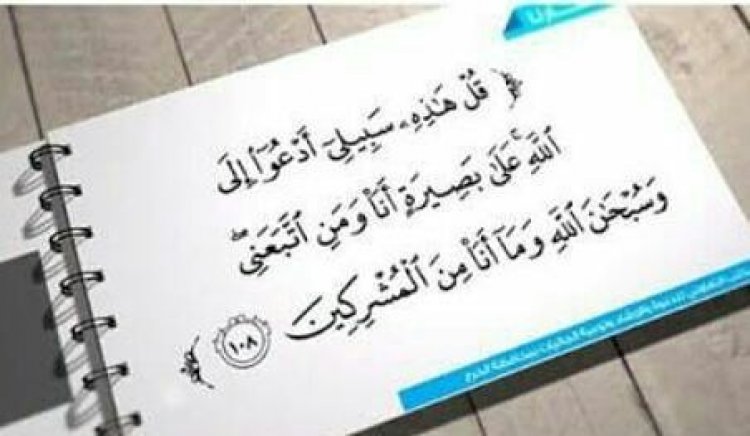 ﴿ قُلْ هَٰذِهِۦ سَبِيلِىٓ أَدْعُوٓا۟ إِلَى
ٱللَّهِ ۚ عَلَىٰ بَصِيرَةٍ أَنَا۠ وَمَنِ ٱتَّبَعَنِى ۖ
وَسُبْحَٰنَ ٱللَّهِ وَمَآ أَنَا۠ مِنَ ٱلْمُشْرِكِينَ ١٠٨ ﴾